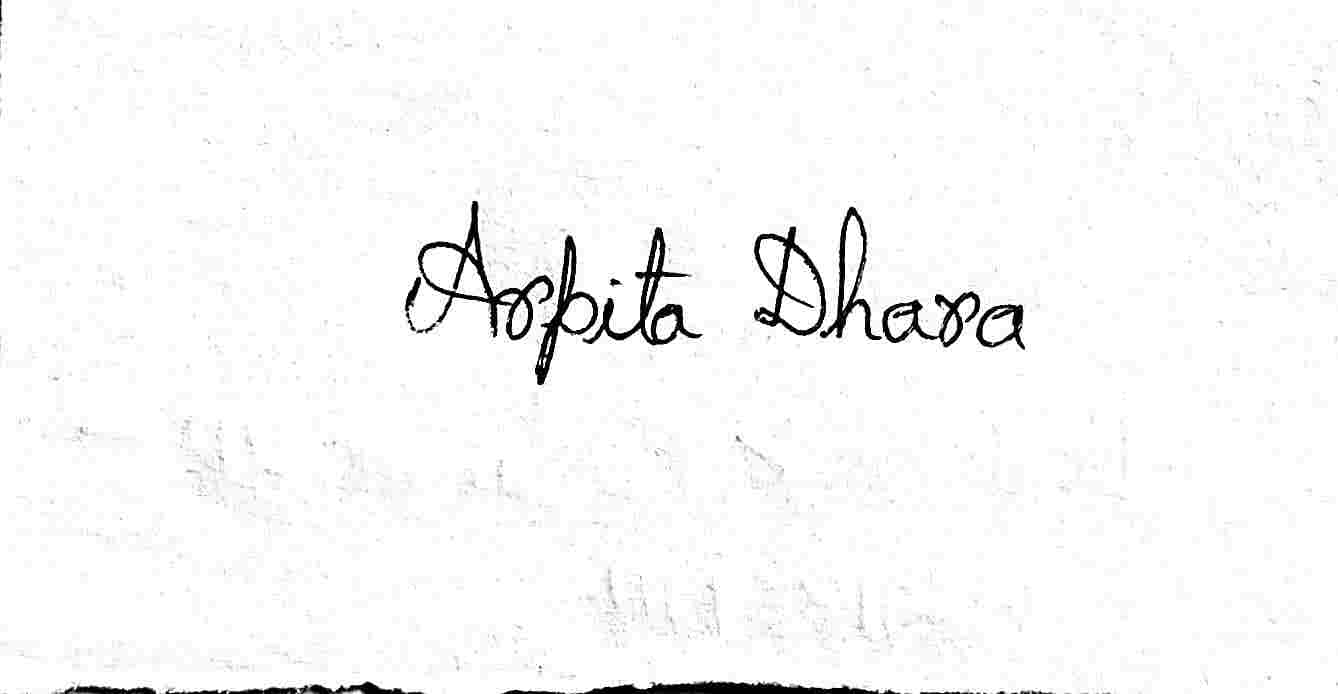 Arpita Dhara